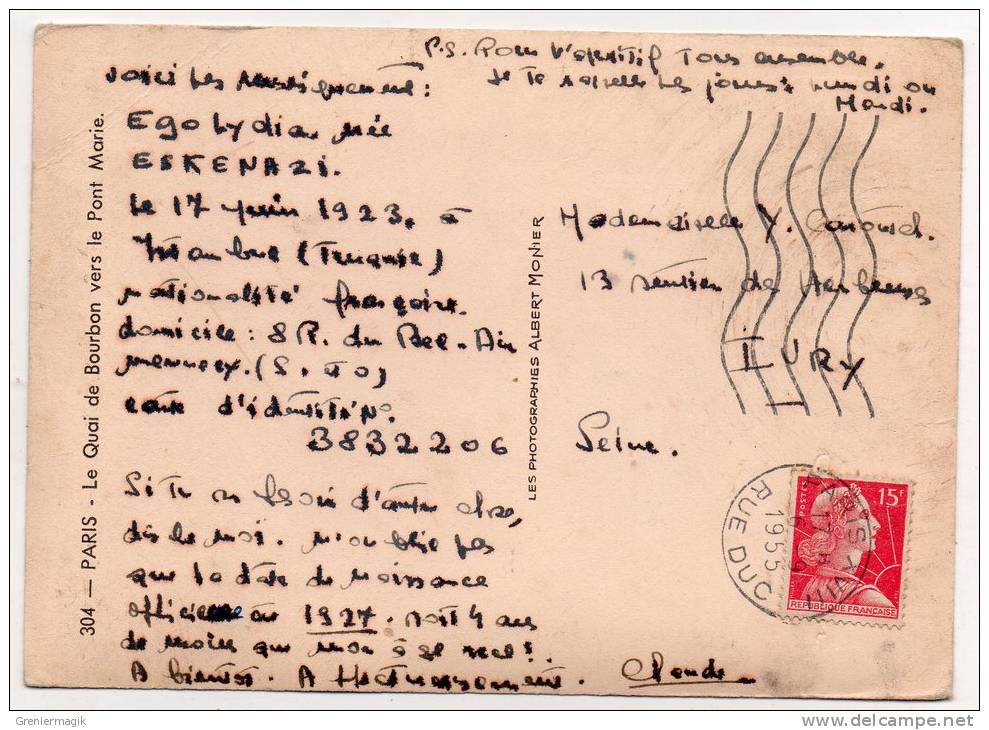 P.S. Pour l'apéritif tous ensemble.
Je te rappelle les jours: lundi ou
Mardi.
voici les renseignements :
Ego Lydia née
ESKENAZI.
le 17 juin 1923. à
Istanbul (Turquie)
nationalité française.
domicile : 8 R. du Bel-Air
mennecy. (S. et O)
carte d'identité No.
3832206
Si tu as besoin d'autre chose,
dis le moi. N'oublie pas
que ta date de naissance
officielle est 1927. soit 4 ans
de moins que mon âge réel!
A bientôt. A
Claude
Mademoiselle Y.
13 sentier de
IVRY
Seine.
304 — PARIS - Le Quai de Bourbon vers le Pont Marie.
LES PHOTOGRAPHIES ALBERT MONIER
POSTES 15F
REPUBLIQUE FRANÇAISE
PARIS XVIII
17 H
6 9
1955
RUE DUC
Greniermagik
www.delcampe.net